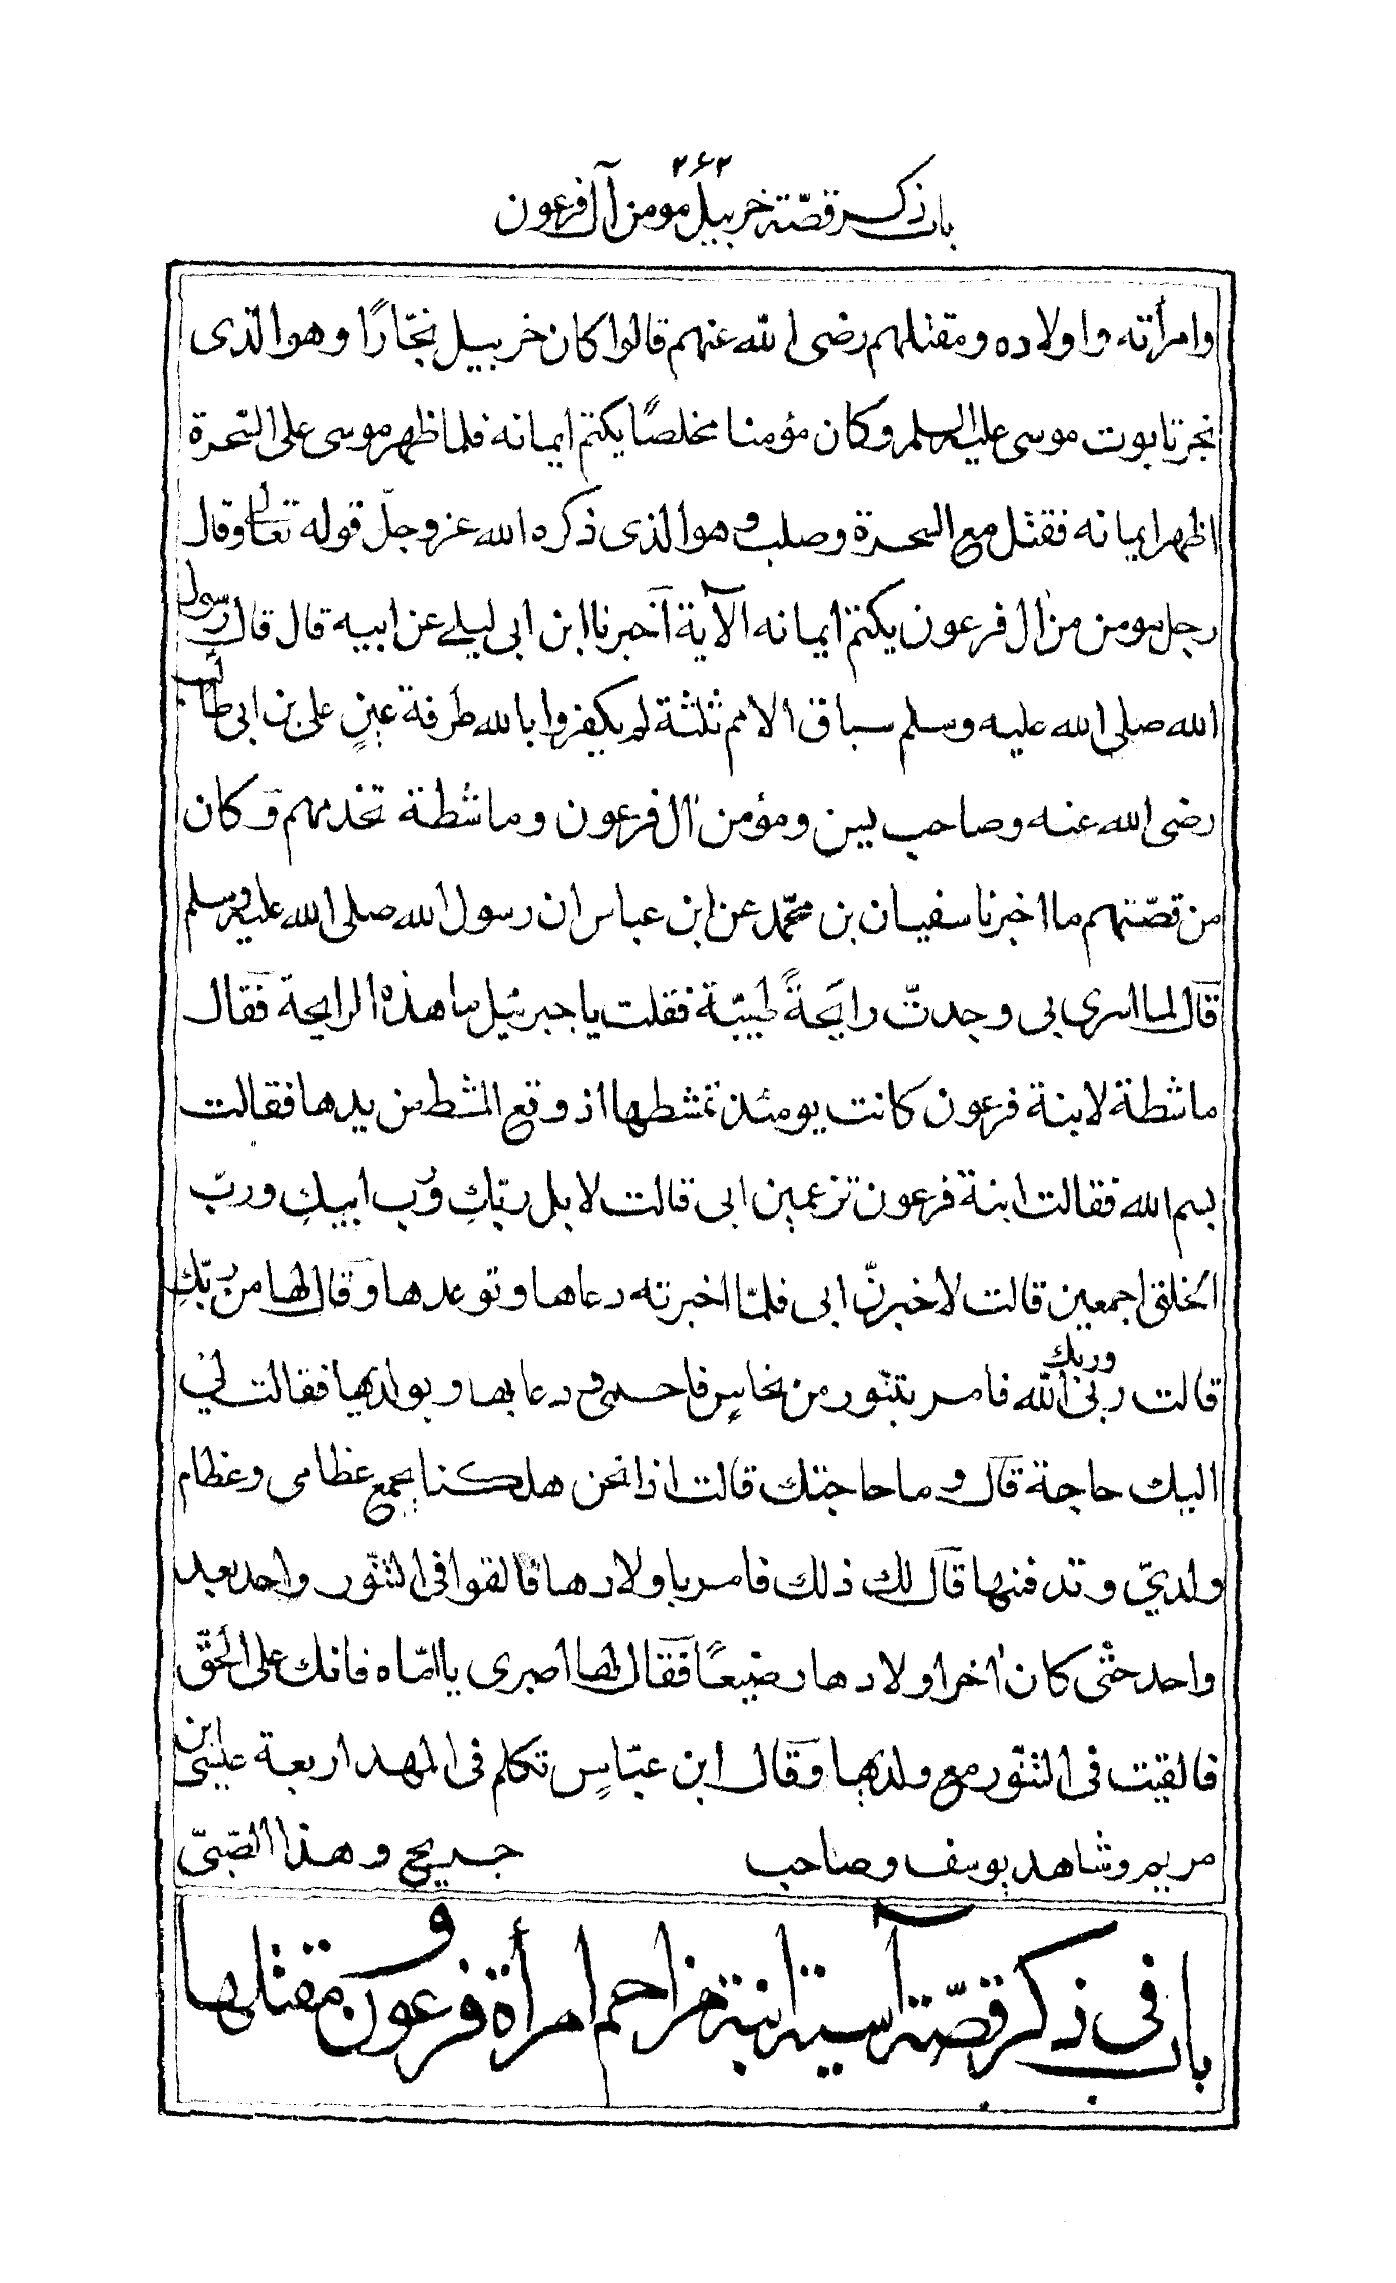 ۲۶۲
باب ذكر قصّة خربيل مومن آل فرعون
وامرأته واولاده ومقتلهم رضى الله عنهم قالوا كان خربيل نجّارًا وهو الذى
نجر تابوت موسى عليه السلم وكان مؤمنا مخلصًا يكتم ايمانه فلما ظهر موسى على السّحرة
اظهر ايمانه فقتل مع السحرة وصلب وهو الذى ذكره الله عز وجلّ قوله تعالى وقال
رجل مومن من اٰل فرعون يكتم ايمانه الآية آخبرنا ابن ابى ليلے عن ابيه قال قال رسول
الله صلى الله عليه وسلم سباق الامم ثلثة لم يكفروا بالله طرفة عينٍ على بن ابى طالب
رضى الله عنه وصاحب يسن ومؤمن اٰل فرعون وماشطة تخدمهم وكان
من قصّتهم ما اخبرنا سفيان بن محمّد عن ابن عباس ان رسول الله صلى الله عليه وسلم
قال لما اسرى بى وجدتّ رايحةً طيّبة فقلت يا جبرئيل ما هذه الرايحة فقال
ماشطة لابنة فرعون كانت يومئذ تمشطها اذ وقع المشط من يدها فقالت
بسم الله فقالت ابنة فرعون تزعمين ابى قالت لا بل ربّكِ ورُب ابيكِ وربّ
الخلق اجمعين قالت لاخبرنّ ابى فلمّا اخبرته دعاها وتوعدها وقال لها من ربّكِ
قالت ربى وربك الله فامر بتنّور من نحاسٍ فاحمى ودعا بها وبولديها فقالت لى
اليك حاجة قال وما حاجتك قالت اذا نحن هلكنا يجمع عظامى وعظام
ولديّ وتدفنها قال لك ذلك فامر باولادها فالقوا فى التنّور واحد بعد
واحد حتى كان اٰخر اولادها رضيعًا فقال لها اصبرى يا امّاه فانك على الحقّ
فالقيت فى التنّور مع ولديها وقال ابن عبّاسٍ تكلم فى المهد اربعة عيسى ابن
مريم وشاهد يوسف وصاحب جريج وهذا الصّبىّ
باب فى ذكر قصّة آسية ابنة مزاحم امرأة فرعون ومقتلها